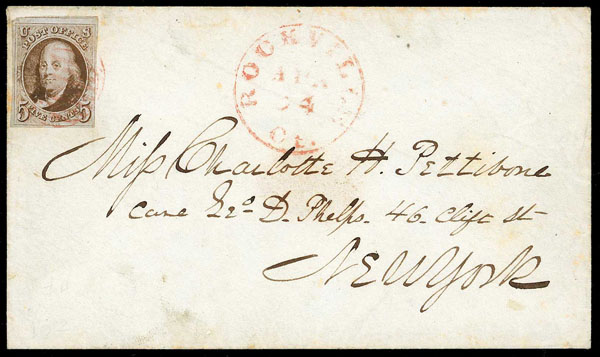 U S
POST OFFICE
FIVE CENTS
5 5
ROCKVILLE
APR
24
Ct.
Miss Charlotte H. Pettibone
care Geo D. Phelps. 46. Clift st
New York